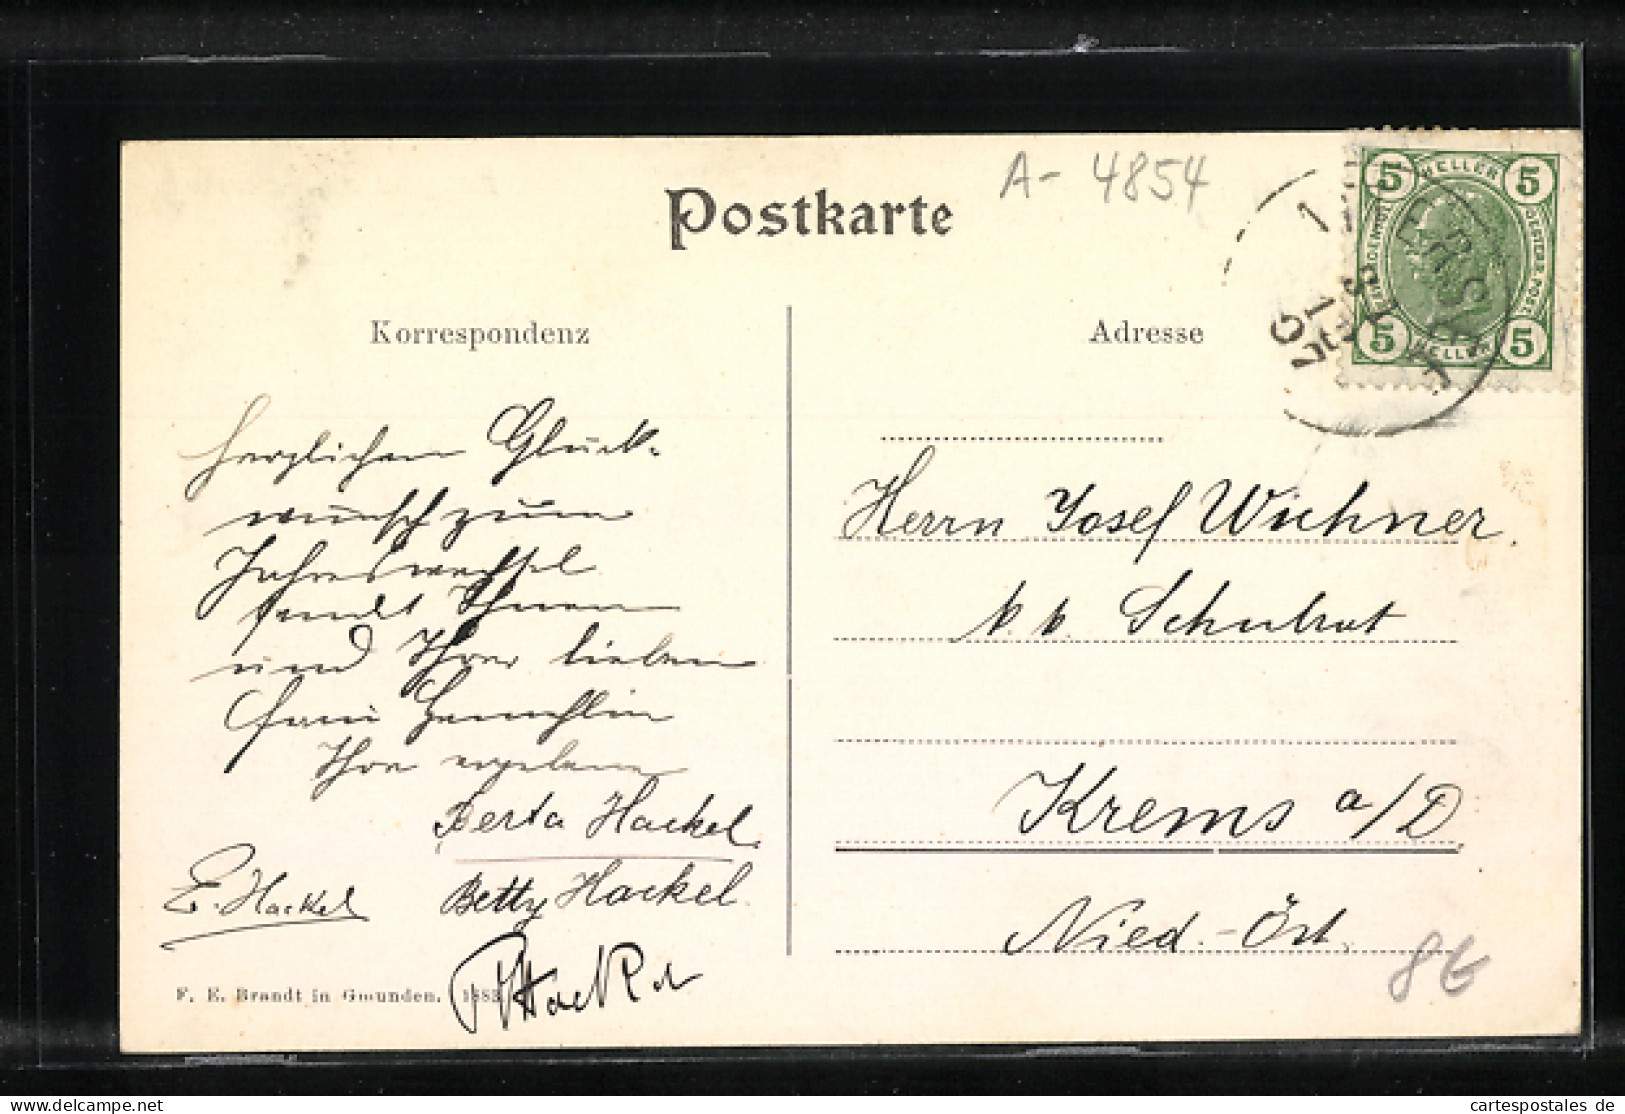 A- 4854
Postkarte
5 HELLER 5
5 HELLER 5
Korrespondenz
Adresse
Herzlichen Glück-
wunsch zum
Jahreswechsel
sendt Ihnen
und Ihrer lieben
Frau Gemahlin
Ihre ergebene
Berta Hackel.
Betty Hackel.
E. Hackel
Hackel
Herrn Josef Wichner.
k. k. Schulrat
Krems a/D
Nied.-Öst.
8€
F. E. Brandt in Gmunden. 1883
cartespostales de